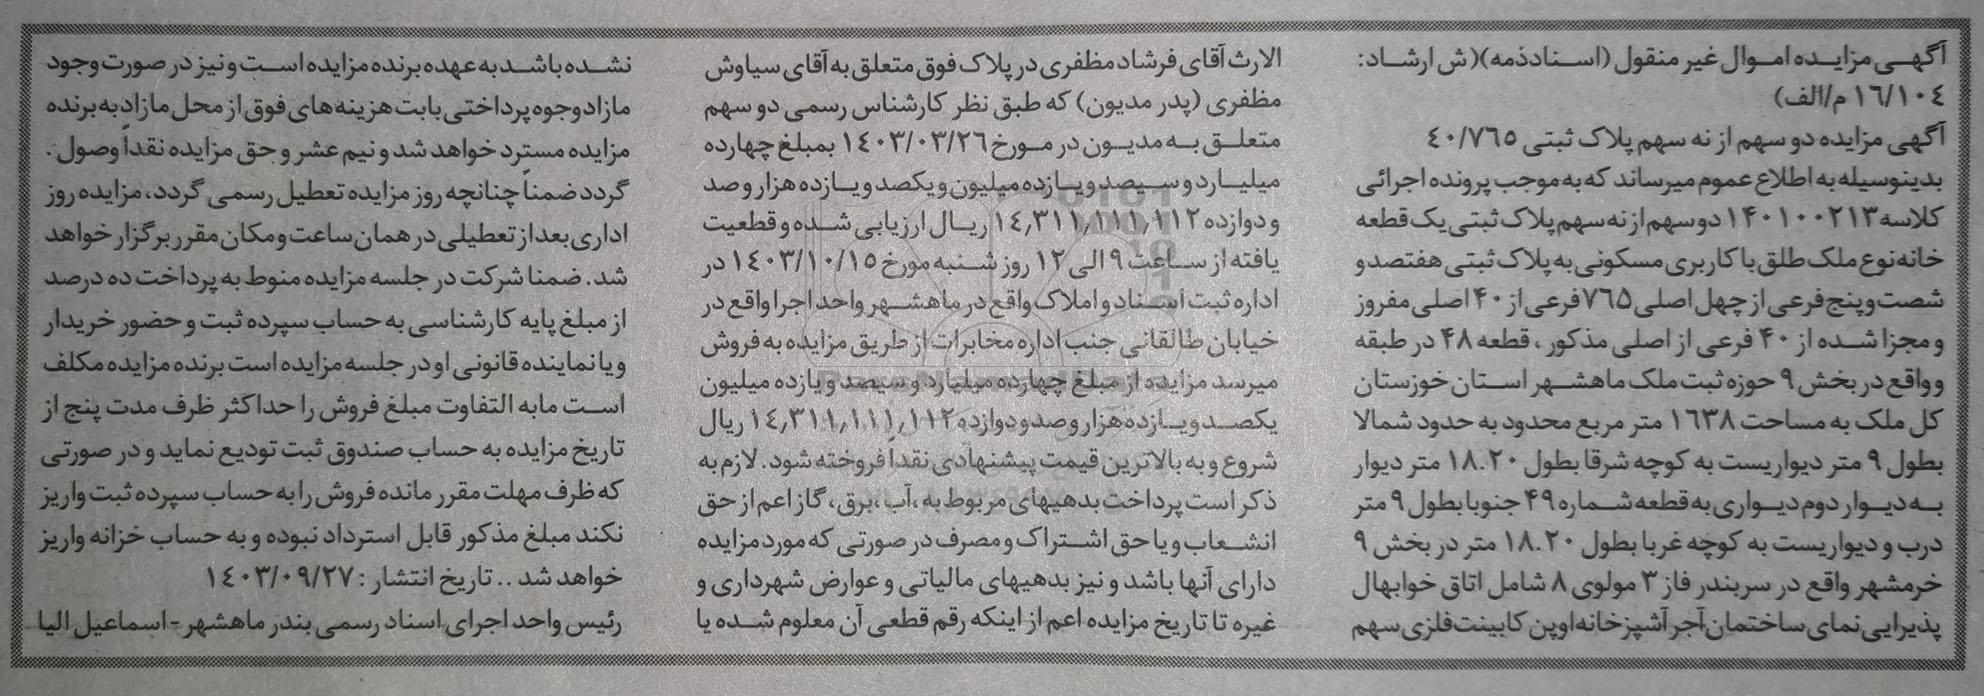 آگهی مزایده اموال غیر منقول (اسنادذمه)( ش ارشاد:
۱۶/۱۰۴ م/الف)
آگهی مزایده دو سهم از نه سهم پلاک ثبتی ۴۰/۷۶۵
بدینوسیله به اطلاع عموم میرساند که به موجب پرونده اجرائی
کلاسه ۱۴۰۱۰۰۲۱۳ دو سهم از نه سهم پلاک ثبتی یک قطعه
خانه نوع ملک طلق با کاربری مسکونی به پلاک ثبتی هفتصد و
شصت و پنج فرعی از چهل اصلی ۷۶۵ فرعی از ۴۰ اصلی مفروز
و مجزا شده از ۴۰ فرعی از اصلی مذکور ، قطعه ۴۸ در طبقه
و واقع در بخش ۹ حوزه ثبت ملک ماهشهر استان خوزستان
کل ملک به مساحت ۱۶۳۸ متر مربع محدود به حدود شمالا
بطول ۹ متر دیواریست به کوچه شرقا بطول ۱۸.۲۰ متر دیوار
به دیوار دوم دیواری به قطعه شماره ۴۹ جنوبا بطول ۹ متر
درب و دیواریست به کوچه غربا بطول ۱۸.۲۰ متر در بخش ۹
خرمشهر واقع در سربندر فاز ۳ مولوی ۸ شامل اتاق خوابهال
پذیرایی نمای ساختمان آجر آشپزخانه اوپن کابینت فلزی سهم
الارث آقای فرشاد مظفری در پلاک فوق متعلق به آقای سیاوش
مظفری (پدر مدیون) که طبق نظر کارشناس رسمی دو سهم
متعلق به مدیون در مورخ ۱۴۰۳/۰۳/۲۶ بمبلغ چهارده
میلیارد و سیصد و یازده میلیون و یکصد و یازده هزار و صد
و دوازده ۱۴٫۳۱۱٫۱۱۱٫۱۱۲ ریال ارزیابی شده و قطعیت
یافته از ساعت ۹ الی ۱۲ روز شنبه مورخ ۱۴۰۳/۱۰/۱۵ در
اداره ثبت اسناد و املاک واقع در ماهشهر واحد اجرا واقع در
خیابان طالقانی جنب اداره مخابرات از طریق مزایده به فروش
میرسد مزایده از مبلغ چهارده میلیارد و سیصد و یازده میلیون
یکصد و یازده هزار و صد و دوازده ۱۴٫۳۱۱٫۱۱۱٫۱۱۲ ریال
شروع و به بالاترین قیمت پیشنهادی نقداً فروخته شود. لازم به
ذکر است پرداخت بدهیهای مربوط به ،آب ،برق ، گاز اعم از حق
انشعاب و یا حق اشتراک و مصرف در صورتی که مورد مزایده
دارای آنها باشد و نیز بدهیهای مالیاتی و عوارض شهرداری و
غیره تا تاریخ مزایده اعم از اینکه رقم قطعی آن معلوم شده یا
نشده باشد به عهده برنده مزایده است و نیز در صورت وجود
مازاد وجوه پرداختی بابت هزینه های فوق از محل مازاد به برنده
مزایده مسترد خواهد شد و نیم عشر و حق مزایده نقداً وصول.
گردد ضمناً چنانچه روز مزایده تعطیل رسمی گردد، مزایده روز
اداری بعد از تعطیلی در همان ساعت و مکان مقرر برگزار خواهد
شد. ضمنا شرکت در جلسه مزایده منوط به پرداخت ده درصد
از مبلغ پایه کارشناسی به حساب سپرده ثبت و حضور خریدار
و یا نماینده قانونی او در جلسه مزایده است برنده مزایده مکلف
است مابه التفاوت مبلغ فروش را حداکثر ظرف مدت پنج از
تاریخ مزایده به حساب صندوق ثبت تودیع نماید و در صورتی
که ظرف مهلت مقرر مانده فروش را به حساب سپرده ثبت واریز
نکند مبلغ مذکور قابل استرداد نبوده و به حساب خزانه واریز
خواهد شد .. تاریخ انتشار : ۱۴۰۳/۰۹/۲۷
رئیس واحد اجرای اسناد رسمی بندر ماهشهر - اسماعیل الیا